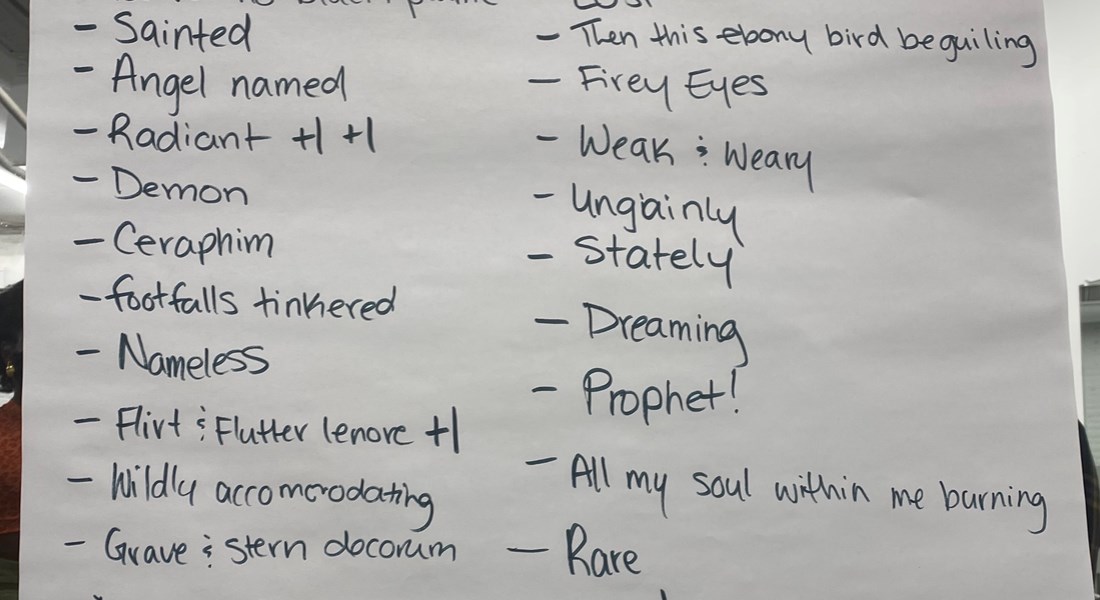 - Sainted
- Angel named
- Radiant +1 +1
- Demon
- Ceraphim
- footfalls tinkered
- Nameless
- Flirt & Flutter lenore +1
- Wildly accomorodating
- Grave & stern docorum
Lost
- Then this ebony bird beguiling
- Firey Eyes
- Weak & Weary
- Ungainly
- Stately
- Dreaming
- Prophet!
- All my soul within me burning
- Rare